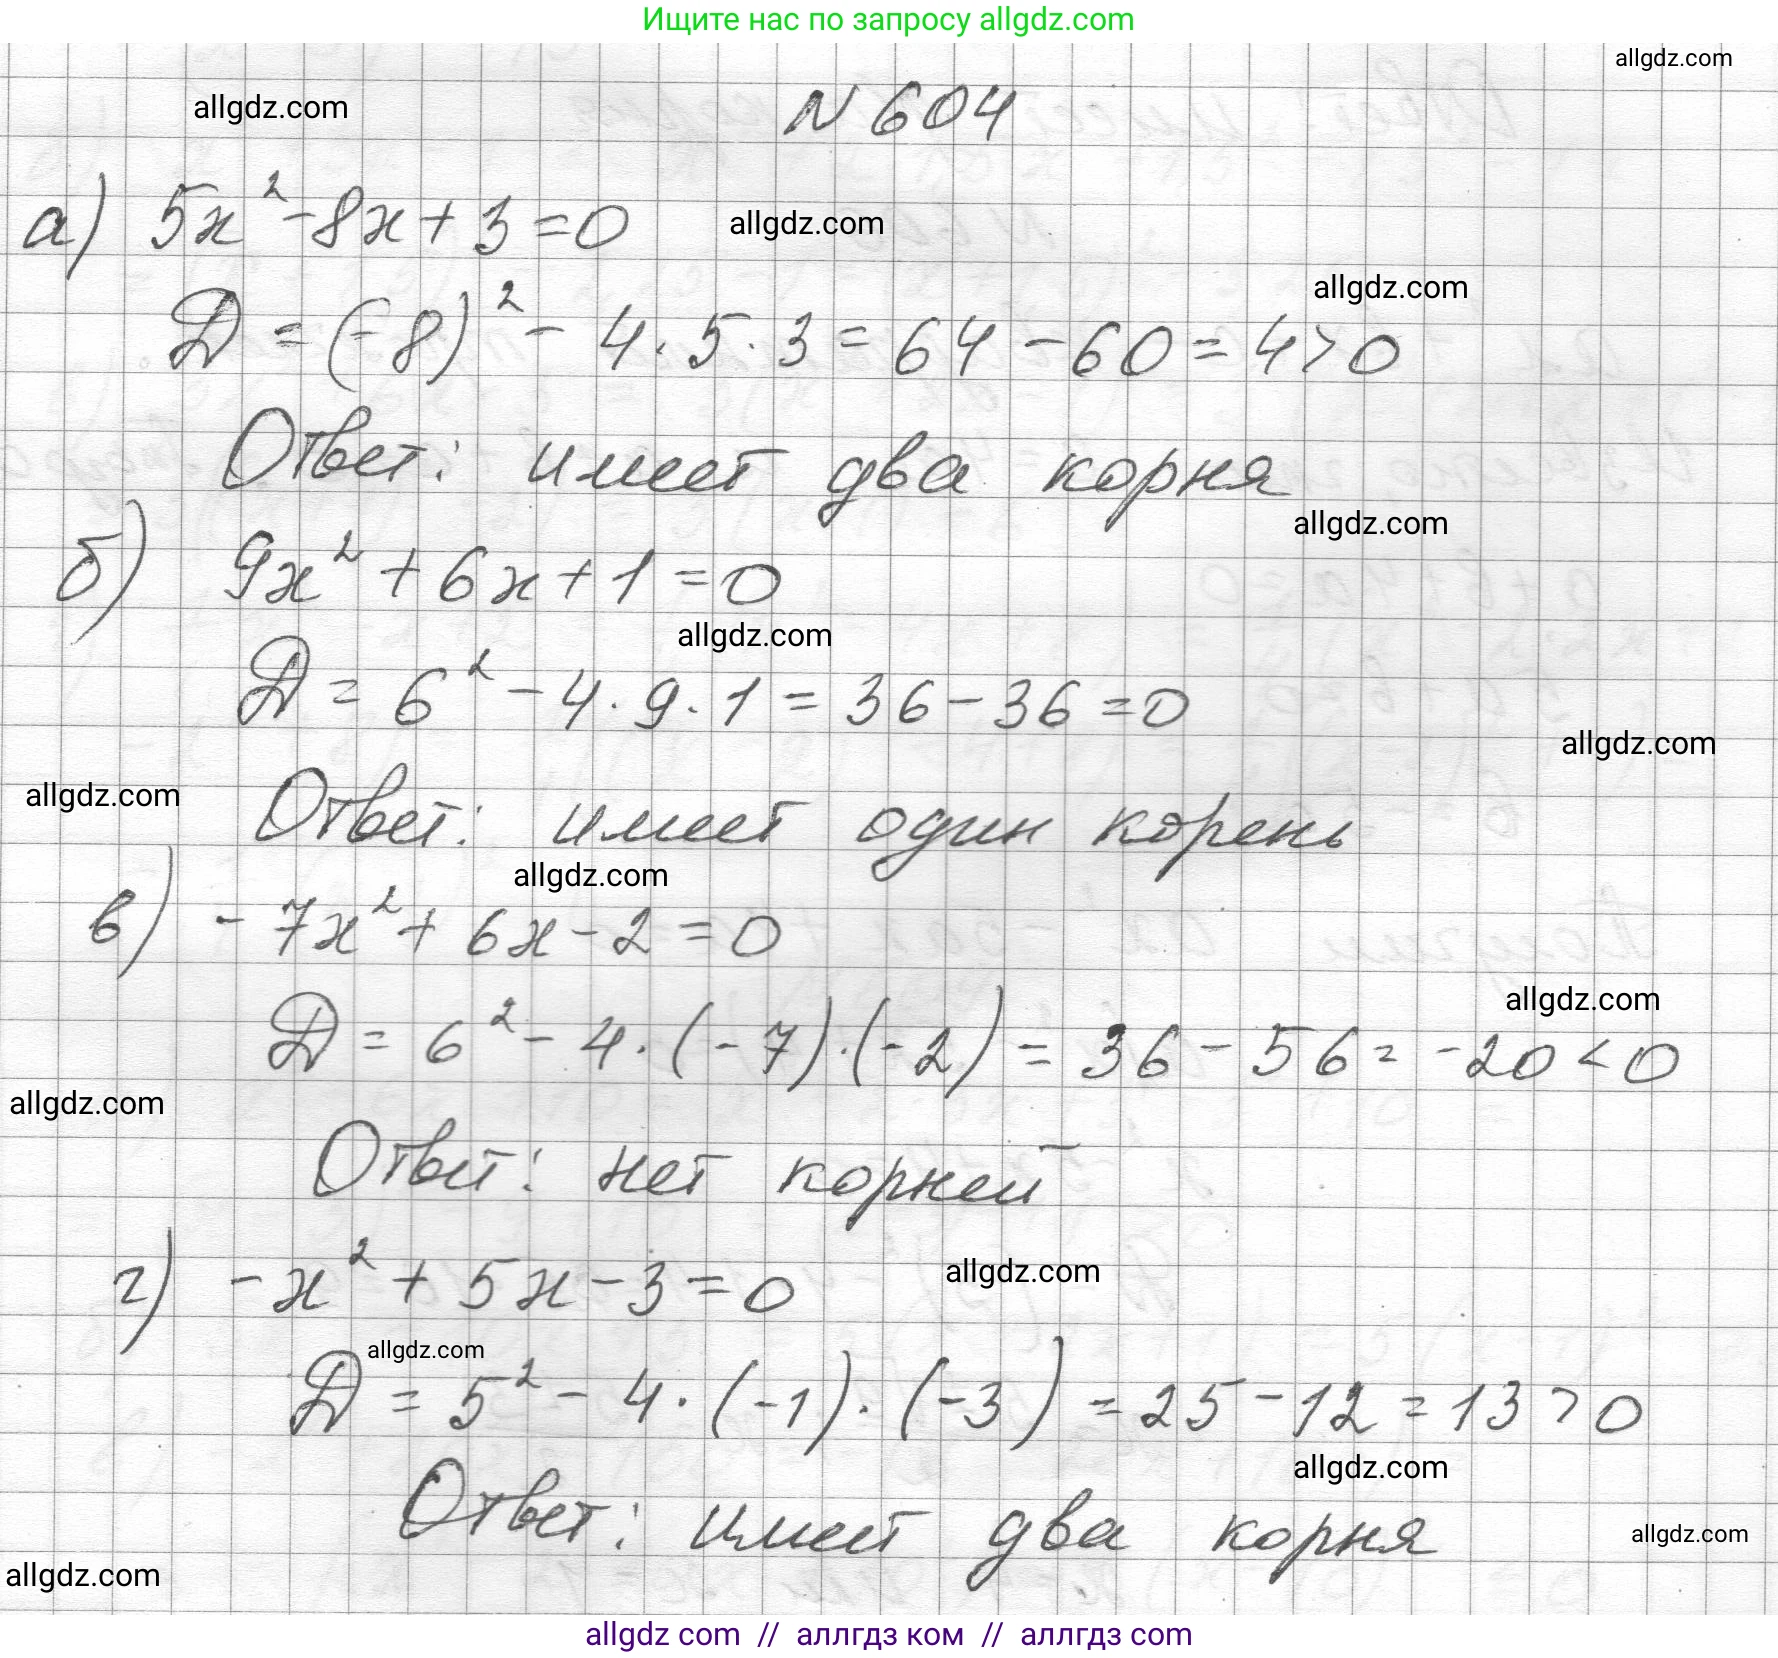 Ищите нас по запросу allgdz.com
allgdz.com
allgdz.com
N 604
а) 5x² - 8x + 3 = 0
allgdz.com
allgdz.com
D = (-8)² - 4 · 5 · 3 = 64 - 60 = 4 > 0
Ответ: имеет два корня
allgdz.com
б) 9x² + 6x + 1 = 0
allgdz.com
D = 6² - 4 · 9 · 1 = 36 - 36 = 0
allgdz.com
allgdz.com
Ответ: имеет один корень
allgdz.com
в) - 7x² + 6x - 2 = 0
allgdz.com
D = 6² - 4 · (-7) · (-2) = 36 - 56 = -20 < 0
allgdz.com
Ответ: нет корней
allgdz.com
г) - x² + 5x - 3 = 0
allgdz.com
D = 5² - 4 · (-1) · (-3) = 25 - 12 = 13 > 0
allgdz.com
Ответ: имеет два корня
allgdz.com
allgdz.com
allgdz com // аллгдз ком // аллгдз com